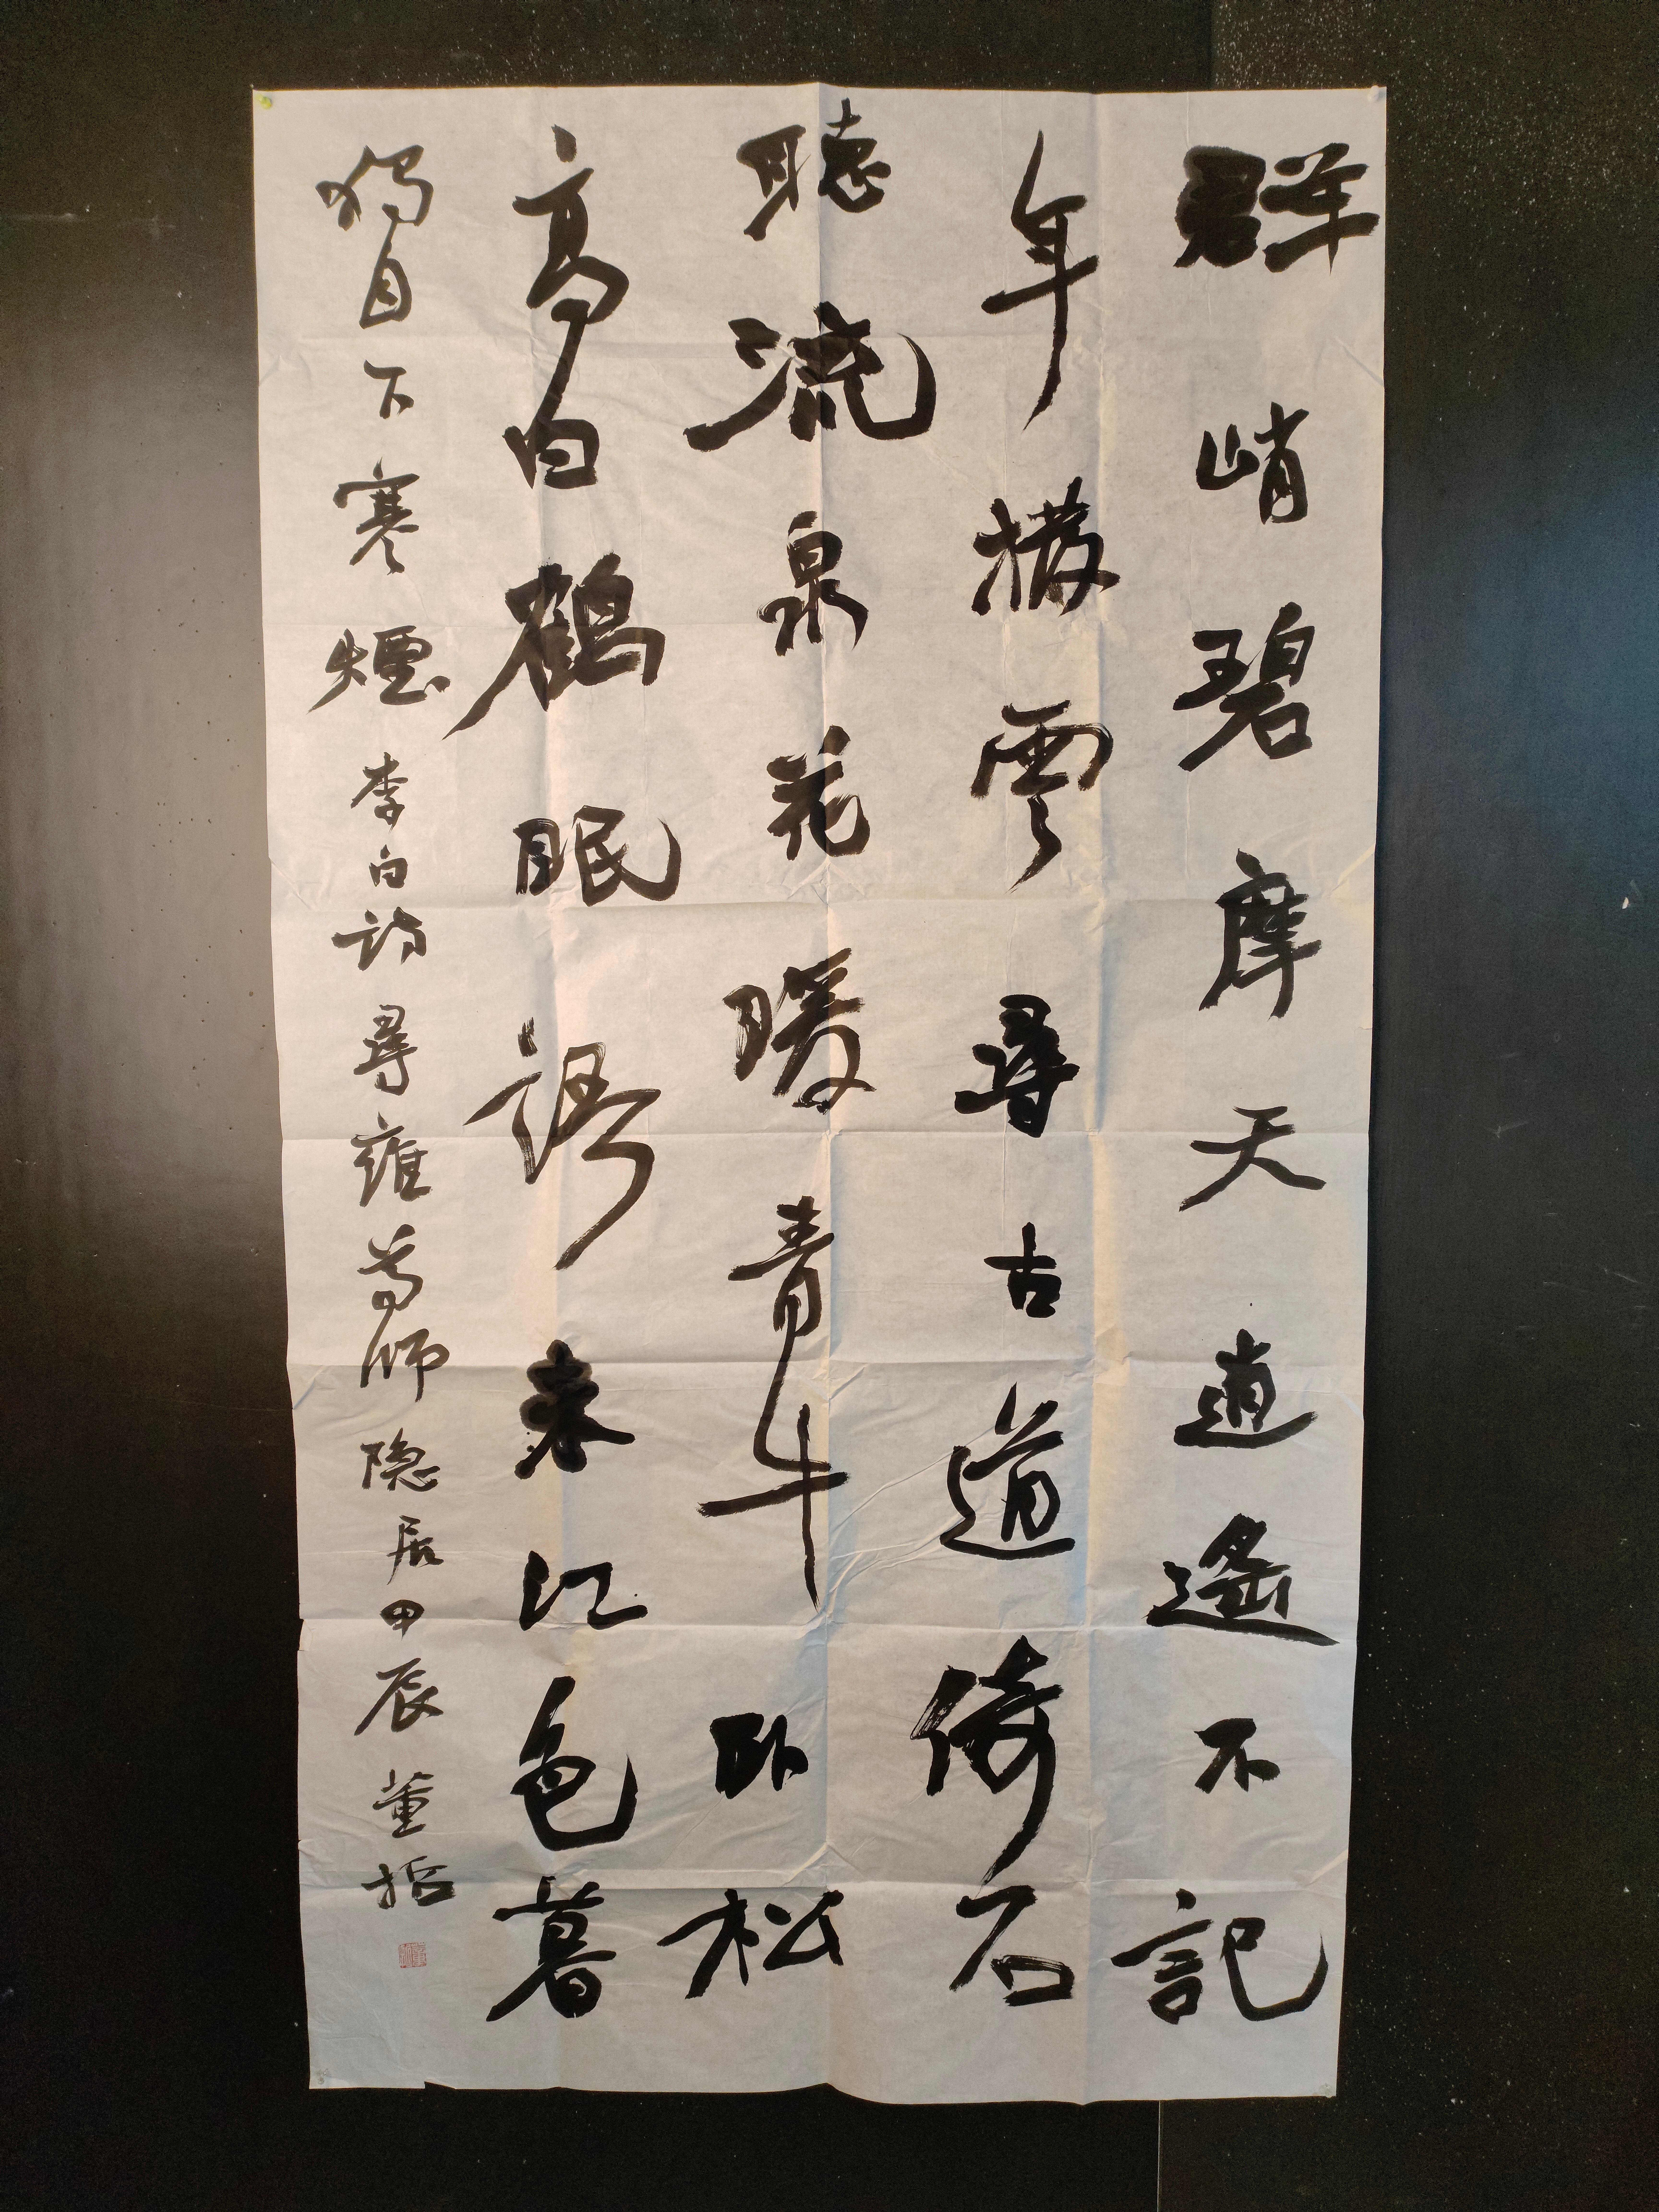 群峭碧摩天逍遙不記
年撥雲尋古道倚石
聽流泉花暖青牛卧松
高白鶴眠語来江色暮
獨自下寒煙李白詩尋雍尊師隐居甲辰董